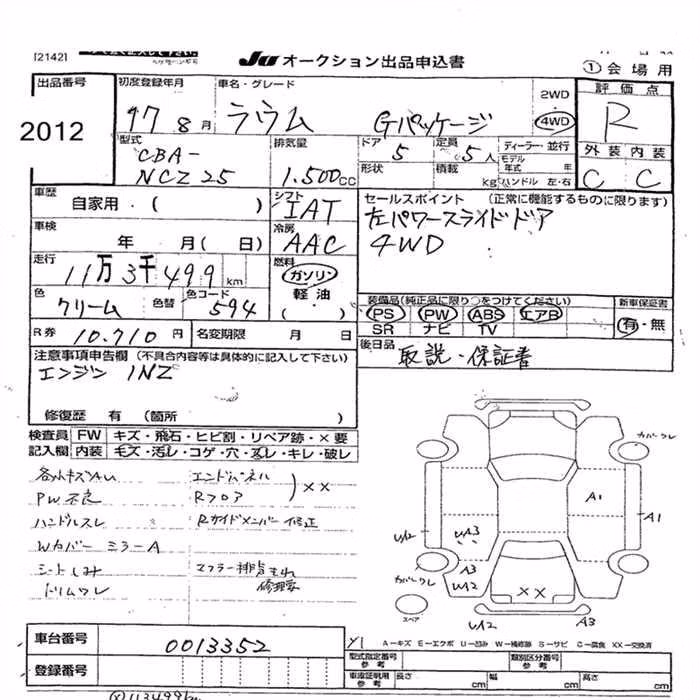 [2142]
JU オークション出品申込書
①会場用
出品番号
2012
初度登録年月
17 8月
車名・グレード
ラウム Gパッケージ
2WD
4WD
評価点
R
型式
CBA-
NCZ25
排気量
1.500cc
ドア
5
定員
5人
ディーラー・並行
モデル年式 年
形状
積載 kg
ハンドル 左・右
外装 内装
C C
車歴
自家用・( )
シフト
IAT
セールスポイント (正常に機能するものに限ります)
左パワースライドドア
4WD
車検
年 月( 日)
冷房
AAC
走行
11万3千499km
燃料
ガソリン
軽油
( )
色
クリーム
色替
色コード
594
装備品(純正品に限り○をつけてください)
PS PW ABS エアB
SR ナビ TV
新車保証書
有・無
R券 10.710円
名変期限 月 日
後日品
取説・保証書
注意事項申告欄 (不具合内容等は具体的に記入して下さい)
エンジン 1NZ
修復歴 有 (箇所 )
検査員 FW キズ・飛石・ヒビ割・リペア跡・×要
記入欄 内装 モズ・汚レ・コゲ・穴・スレ・キレ・破レ
各外キズAU
PW不良
ハンドルスレ
Wカバー ミラーA
シートしみ
トリムワレ
エンドパネル
Rフロア
××
Rサイドメンバー修正
マフラー排気もれ
修理要
カバーワレ
A1
A1
UA2
UA3
A3
UA2
カバーワレ
××
スペア
UA2
A3
車台番号
0013352
登録番号
A=キズ E=エクボ U=凹み W=補修跡 S=サビ C=腐食 XX=交換済
型式指定番号
参考
類別区分番号
参考
車庫証明用
参考
長さ cm
幅 cm
高さ cm